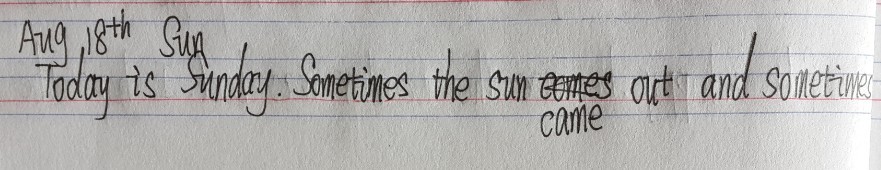 Aug ,18th Sun
Today is Sunday. Sometimes the sun comes out and sometimes
came